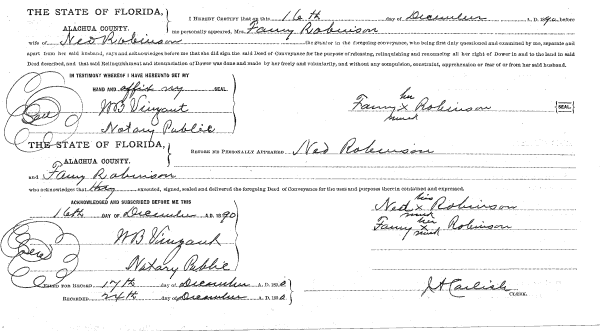 THE STATE OF FLORIDA,
ALACHUA COUNTY.
I HEREBY CERTIFY that on this 16th day of December A.D. 1890, before
me personally appeared, Mrs. Fanny Robinson
wife of Ned Robinson the grantor in the foregoing conveyance, who being first duly questioned and examined by me, separate and
apart from her said husband, says and acknowledges before me that she did sign the said Deed of Conveyance for the purpose of releasing, relinquishing and renouncing all her right of Dower in and to the land in said
Deed described, and that said Relinquishment and Renunciation of Dower was done and made by her freely and voluntarily, and without any compulsion, constraint, apprehension or fear of or from her said husband.
IN TESTIMONY WHEREOF I HAVE HEREUNTO SET MY
HAND AND affix my SEAL.
Seal
WB Vinzant
Notary Public
her
Fanny x Robinson
mark
SEAL
THE STATE OF FLORIDA,
ALACHUA COUNTY.
BEFORE ME PERSONALLY APPEARED Ned Robinson
and Fanny Robinson
who acknowledges that they executed, signed, sealed and delivered the foregoing Deed of Conveyance for the uses and purposes therein contained and expressed.
ACKNOWLEDGED AND SUBSCRIBED BEFORE ME THIS
16th DAY OF December A.D. 1890
Seal
WB Vinzant
Notary Public
his
Ned x Robinson
mark
her
Fanny x Robinson
mark
FILED FOR RECORD 17th day of December A.D. 1890
RECORDED 24th day of December A.D. 1890
CLERK.